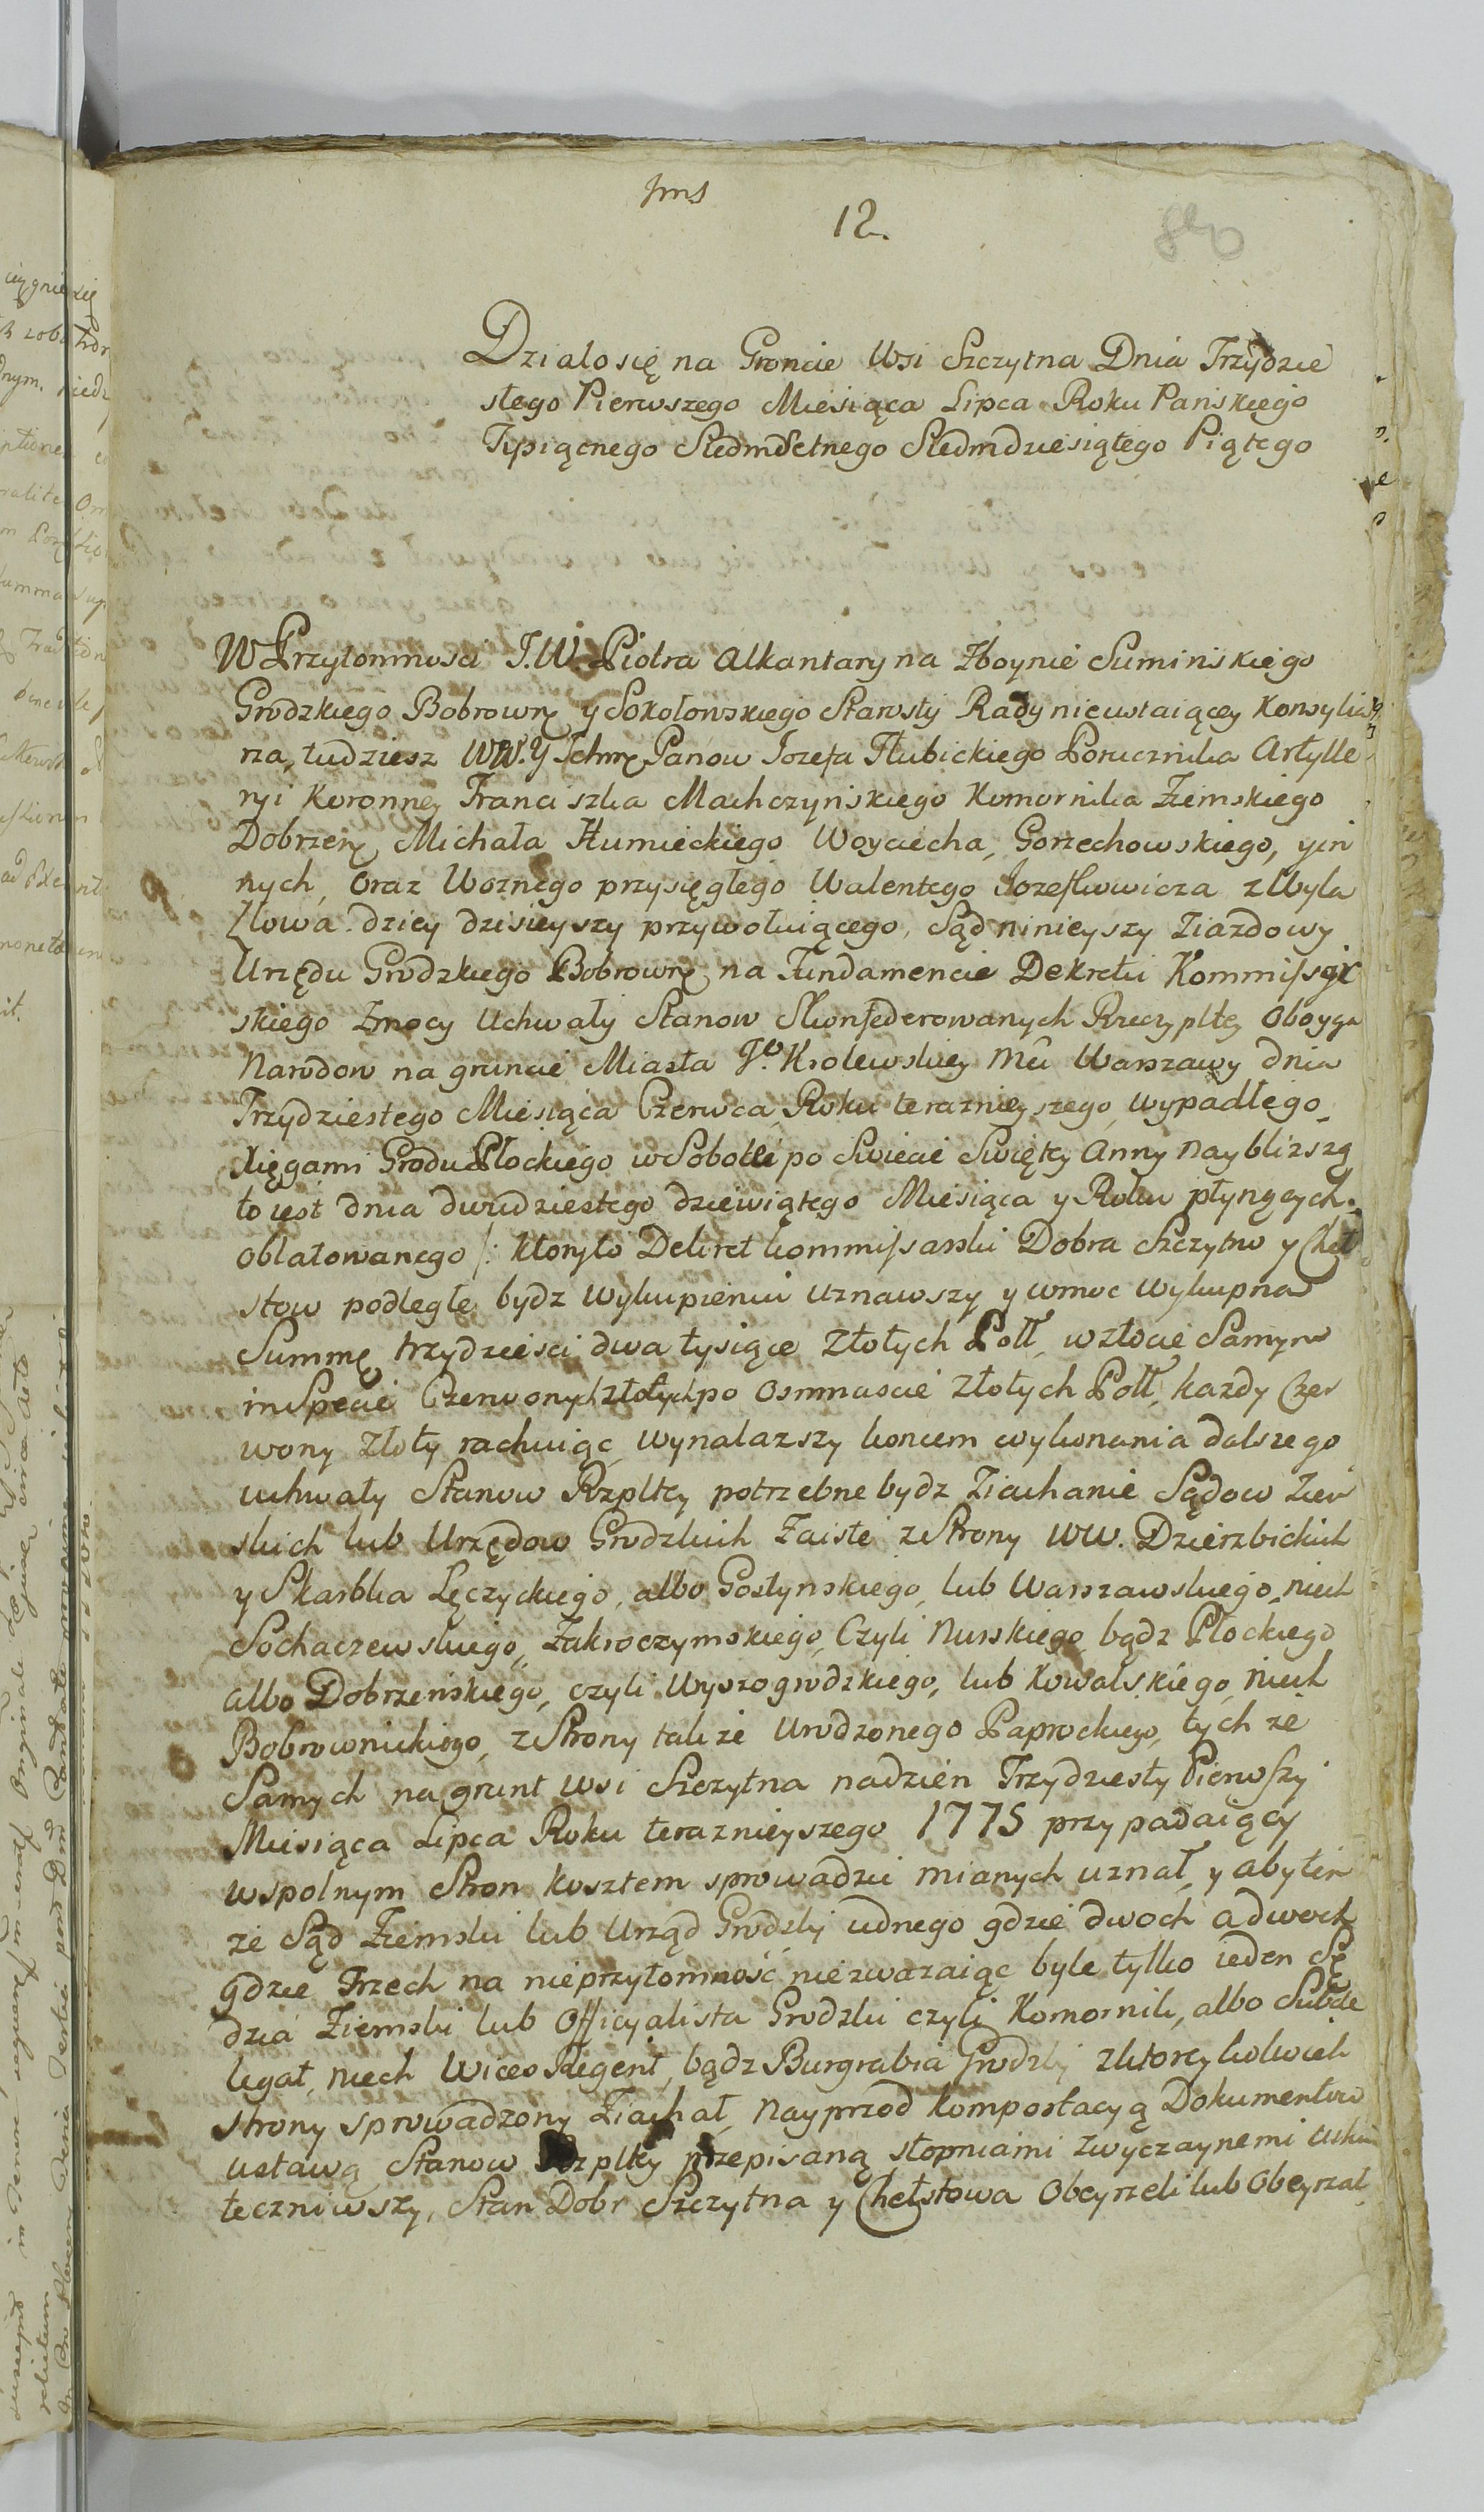 12.
Działo się na Groncie Wsi Szczytna Dnia Trzydzie
stego Pierwszego Miesiąca Lipca Roku Pańskiego
Tysiącnego Siedmsetnego Siedmdziesiątego Piątego
W Przytomnosci J.W. Piotra Alkantary na Zboynie Suminskiego
Grodzkiego Bobrown y Sokołowskiego Starosty Rady nieustaiącey Konsylia
rza, tudziesz WW. Panow Jozefa Hubickiego Porucznika Artylle
ryi Koronney Franciszka Machczyńskiego Komornika Ziemskiego
Dobrzen Michała Humieckiego Woyciecha Gorzechowskiego, y in
nych, oraz Woznego przysięgłego Walentego Jozefkowicza z Wyla
złowa dziey dzisieyszy przywołuiącego, Sąd ninieyszy Ziazdowy
Urzędu Grodzkiego Bobrown na Fundamencie Dekretu Kommissar
skiego Zmocy Uchwały Stanow Skonfederowanych Rzeczyplłey Oboyga
Narodow na gruncie Miasta Jo. Krolewskiey Mci Warszawy dnia
Trzydziestego Miesiąca Czerwca Roku teraznieyszego wypadłego
Xięgami Grodu Płockiego w Sobotę po Swięcie Swiętey Anny naybliższą
to iest dnia dwudziestego dziewiątego Miesiąca y Roku płynących
oblatowanego /: ktoryto Dekret kommissarski Dobra Szczytno y Cheł
stow podległe bydz wykupieniu uznawszy y wmoc wykupna
Summę trzydziesci dwa tysiące Złotych Poll. w złocie Samym
in Specie Czerwonych złotych po osmnascie złotych Poll. każdy Czer
wony złoty rachuiąc wynalazszy koncem wykonania dalszego
uchwały Stanow Rzpltey potrzebne bydz Ziachanie Sądow Ziem
skich lub Urzędow Grodzkich Zaiste z Strony WW. Dzierzbickich
y Skarbka Łęczyckiego, albo Gostynskiego, lub Warszawskiego, niech
Sochaczewskiego, Zakroczymskiego, Czyli Nurskiego bądz Płockiego
albo Dobrzenskiego, czyli Wyszogrodzkiego, lub Kowalskiego, niech
Bobrownickiego, z Strony takze Urodzonego Paprockiego, tych ze
Samych na grunt wsi Szczytna nadzien Trzydziesty Pierwszy
Miesiąca Lipca Roku teraznieyszego 1775 przypadaiący
wspolnym Stron kosztem sprowadzic mianych uznał, y aby ten
ze Sąd Ziemski lub Urząd Grodzki iednego gdzie dwoch a dwoch
gdzie Trzech na nieprzytomność nie zwazaiąc byle tylko ieden Sę
dzia Ziemski lub Officyalista Grodzki czyli Komornik, albo Subde
legat, niech Wices Regent, bądz Burgrabia Grodzki z ktorey kolwiek
strony sprowadzony Ziachał, nayprzod komportacyą Dokumentow
ustawą Stanow Rzpltey przepisaną stopniami zwyczaynemi usku
teczniwszy, Stan Dobr Szczytna y Chełstowa Obeyrzeli lub Obeyrzał